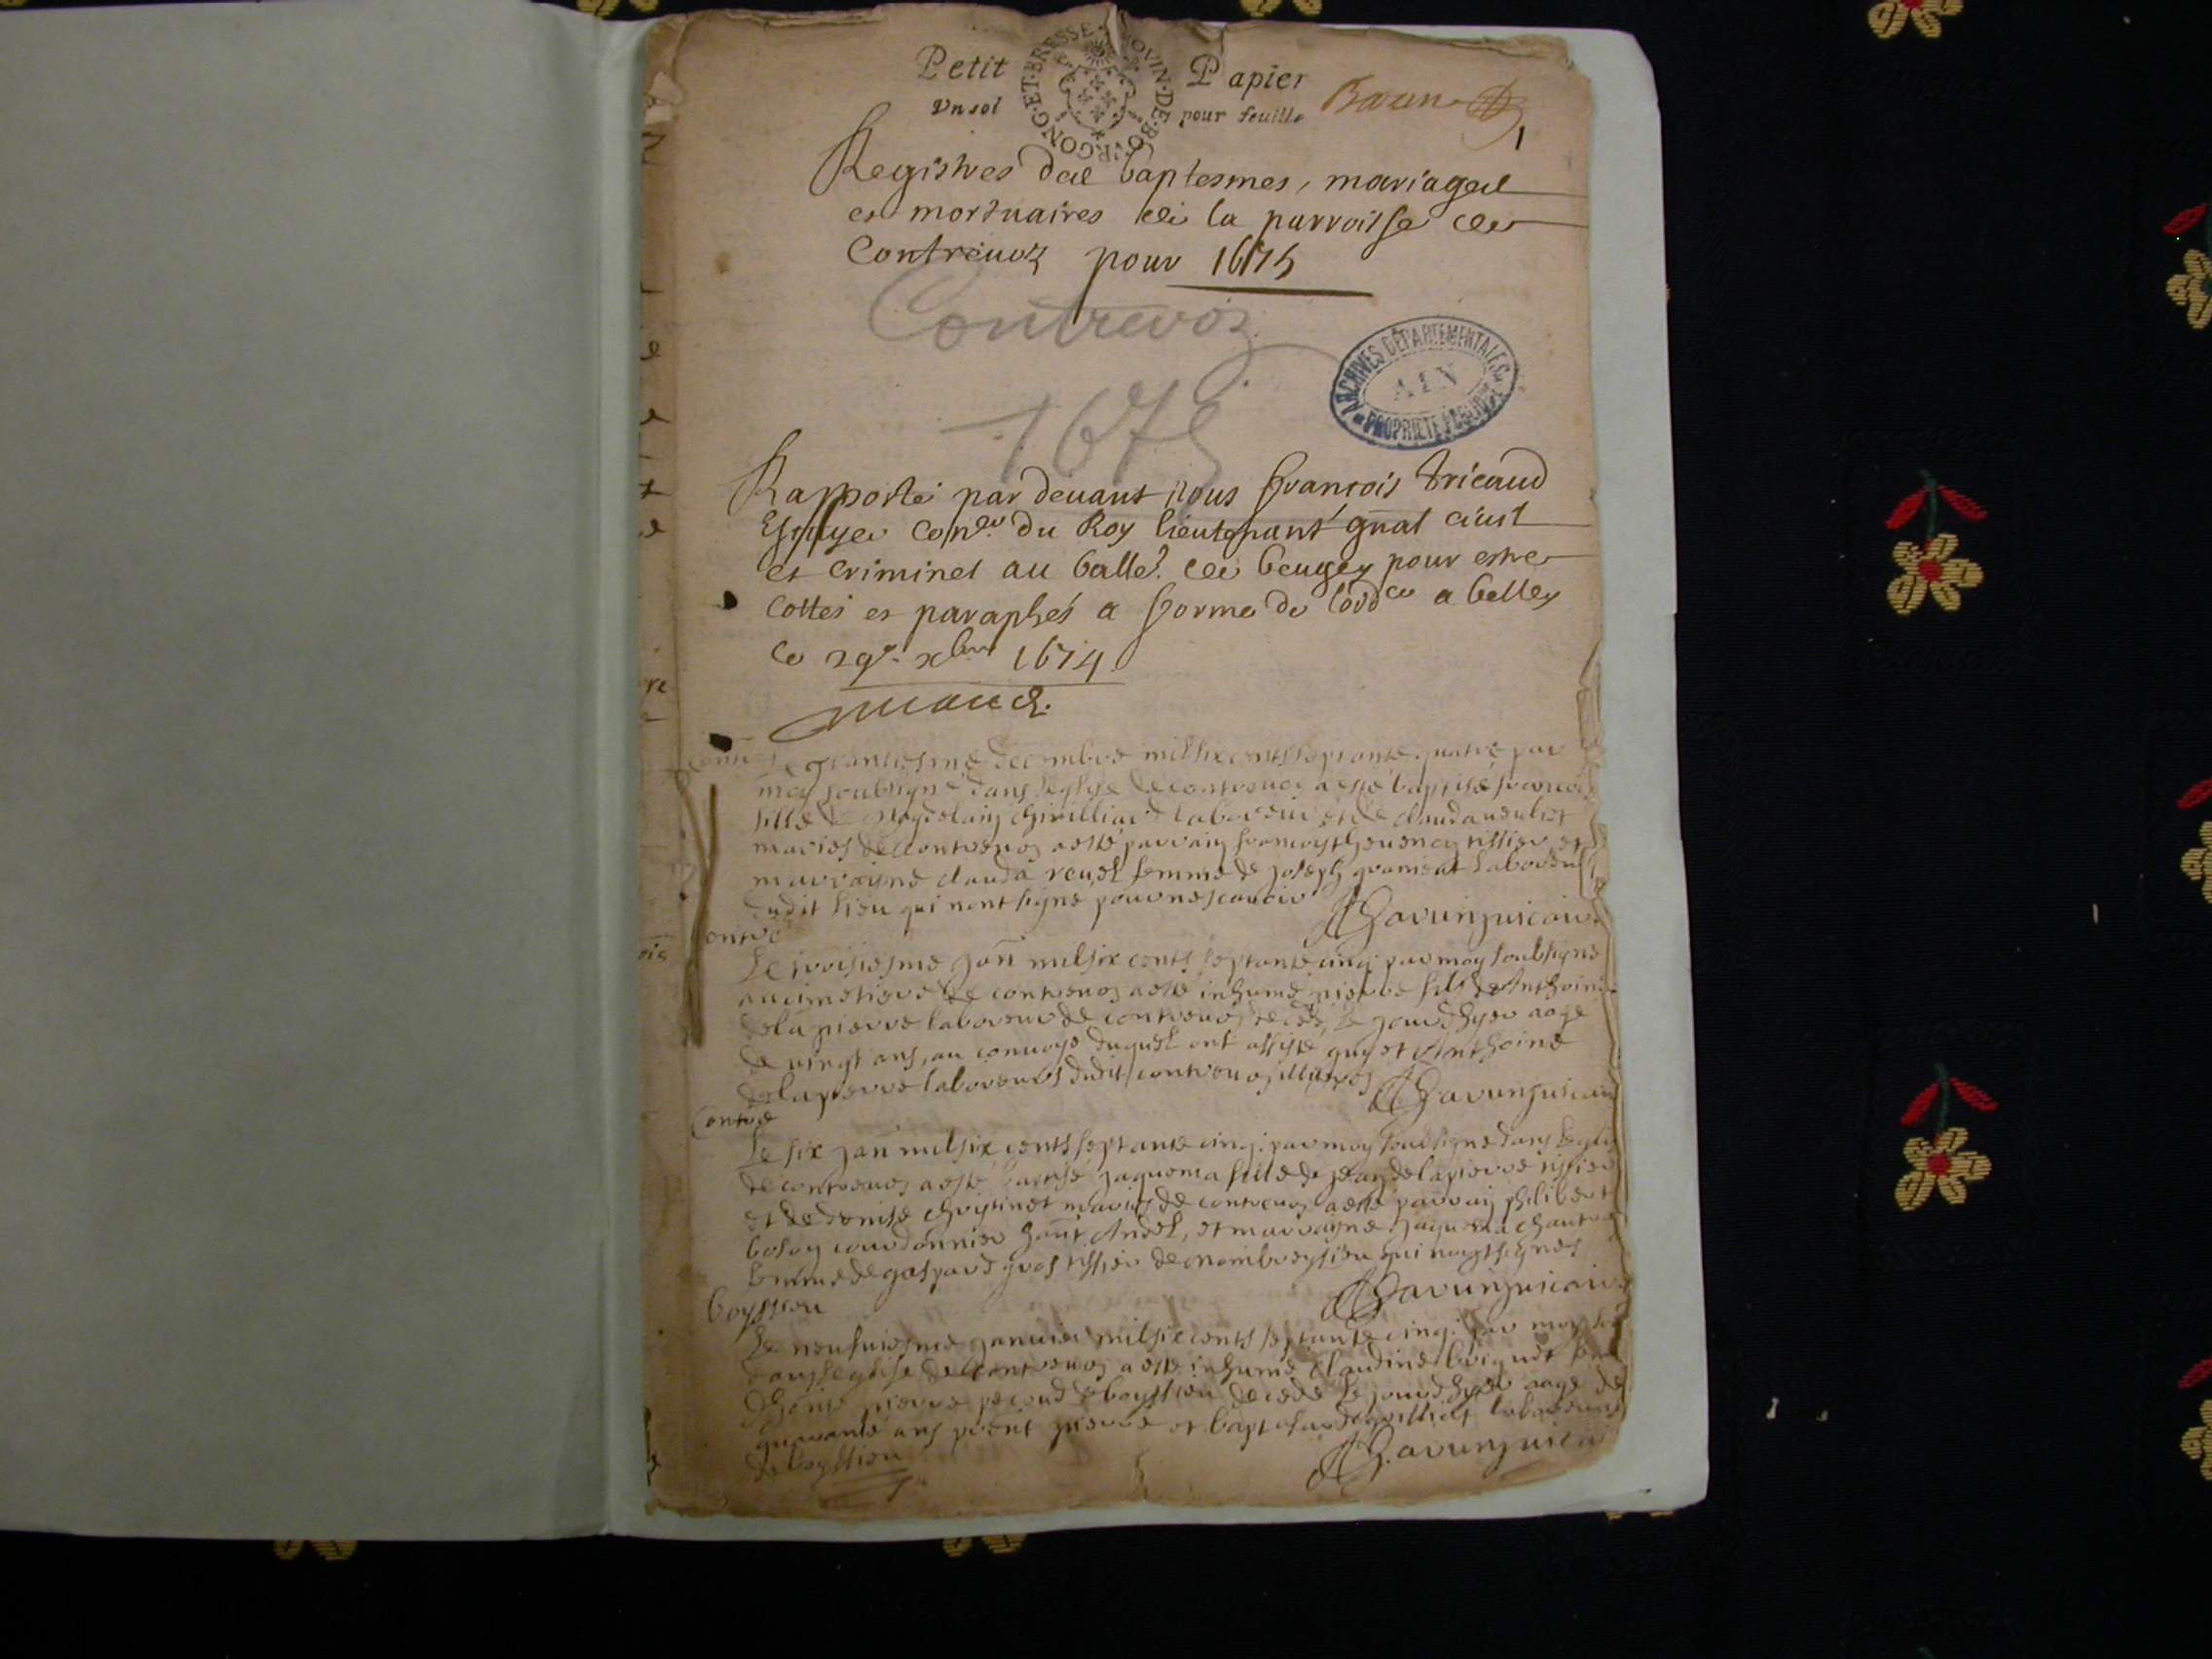 Petit Papier
Vn sol pour feuille
PROVIN·DE·BOVRGONG·ET·BRESSE
1
Registres des baptesmes, mariages
et mortuaires de la parroisse de
Contreuoz pour 1675
Contrevoz
1675
ARCHIVES DÉPARTEMENTALES
AIN
PROPRIÉTÉ PUBLIQUE
Rapporté par deuant nous François Tricaud
Escuyer Coner. du Roy lieutenant gnal ciuil
et Criminel au balle. de beugey pour estre
Cottés et paraphés a forme de lordce a belley
Ce 29e. xbre 1674
Le trantiesme decembre mil six cents septante quatre par
moy soubsigné dans leglise de contreuoz a esté baptisé
fille de Magdelain laboreur et de clauda
mariés de contreuoz a esté parrain francoys theueney tissier et
marrayne clauda reuel femme de joseph laboreur
dudit lieu qui nont signé pour ne scauoir
contre
Le troisiesme jan mil six cents septante cinq par moy soubsigné
au cimetiere de contreuoz a esté inhumé pierre fils de Anthoine
delapierre laboreur de contreuoz decedé le jour dhyer aagé
de vingt ans, au conuoys duquel ont assisté guy et Anthoine
delapierre laboreurs dudit contreuoz
Contre
Le six jan mil six cents septante cinq par moy soubsigné dans leglise
de contreuoz a esté baptisé jaquema fille de jean delapierre tissier
et de denise chrystinet mariés de contreuoz a esté parrain philibert
bosoy courdonnier Andel, et marrayne jaquema
femme de gaspard gros tissier de qui nont signés
boyssieu
Le neufuiesme januier mil six cents septante cinq par moy
dans leglise de contreuoz a esté inhumé Claudine
pierre de boyssieu decedé le jour dhyer aagé de
quarante ans pnt pierre et laboreurs
de boyssieu